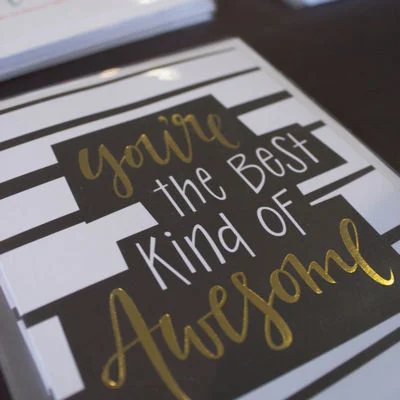 you're
the Best
Kind of
Awesome